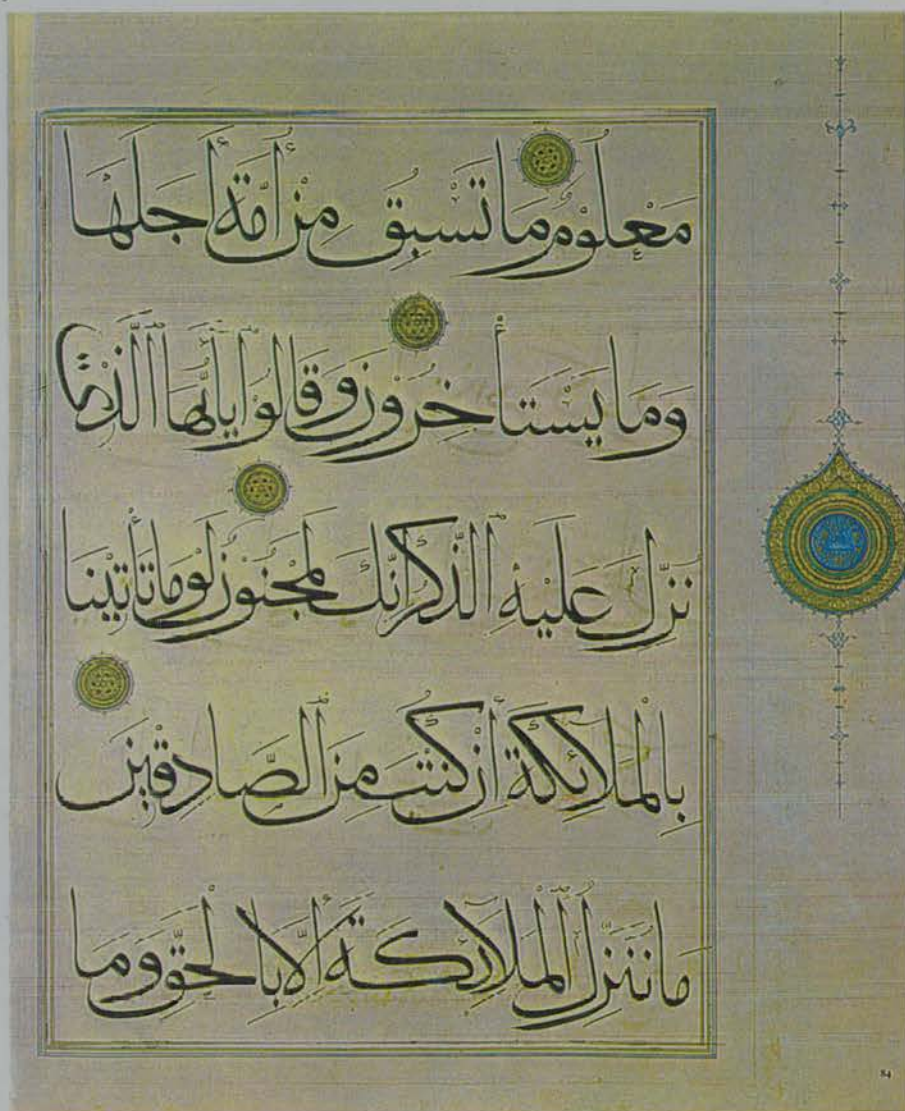 مَعْلُومٌ مَا تَسْبِقُ مِنْ أُمَّةٍ أَجَلَهَا
وَمَا يَسْتَأْخِرُونَ وَقَالُوا يَا أَيُّهَا الَّذِي
نُزِّلَ عَلَيْهِ الذِّكْرُ إِنَّكَ لَمَجْنُونٌ لَوْ مَا تَأْتِينَا
بِالْمَلَائِكَةِ إِنْ كُنْتَ مِنَ الصَّادِقِينَ
مَا نُنَزِّلُ الْمَلَائِكَةَ إِلَّا بِالْحَقِّ وَمَا
84